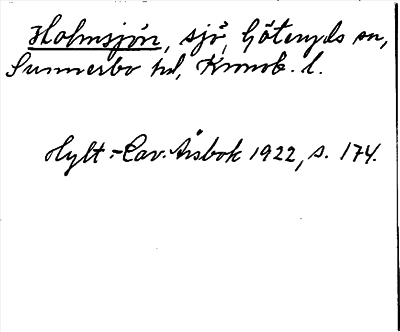 Holmsjön, sjö, Göteryds sn,
Sunnerbo hd, Kronob. l.
Hylt.-Cav. Årsbok 1922, s. 174.